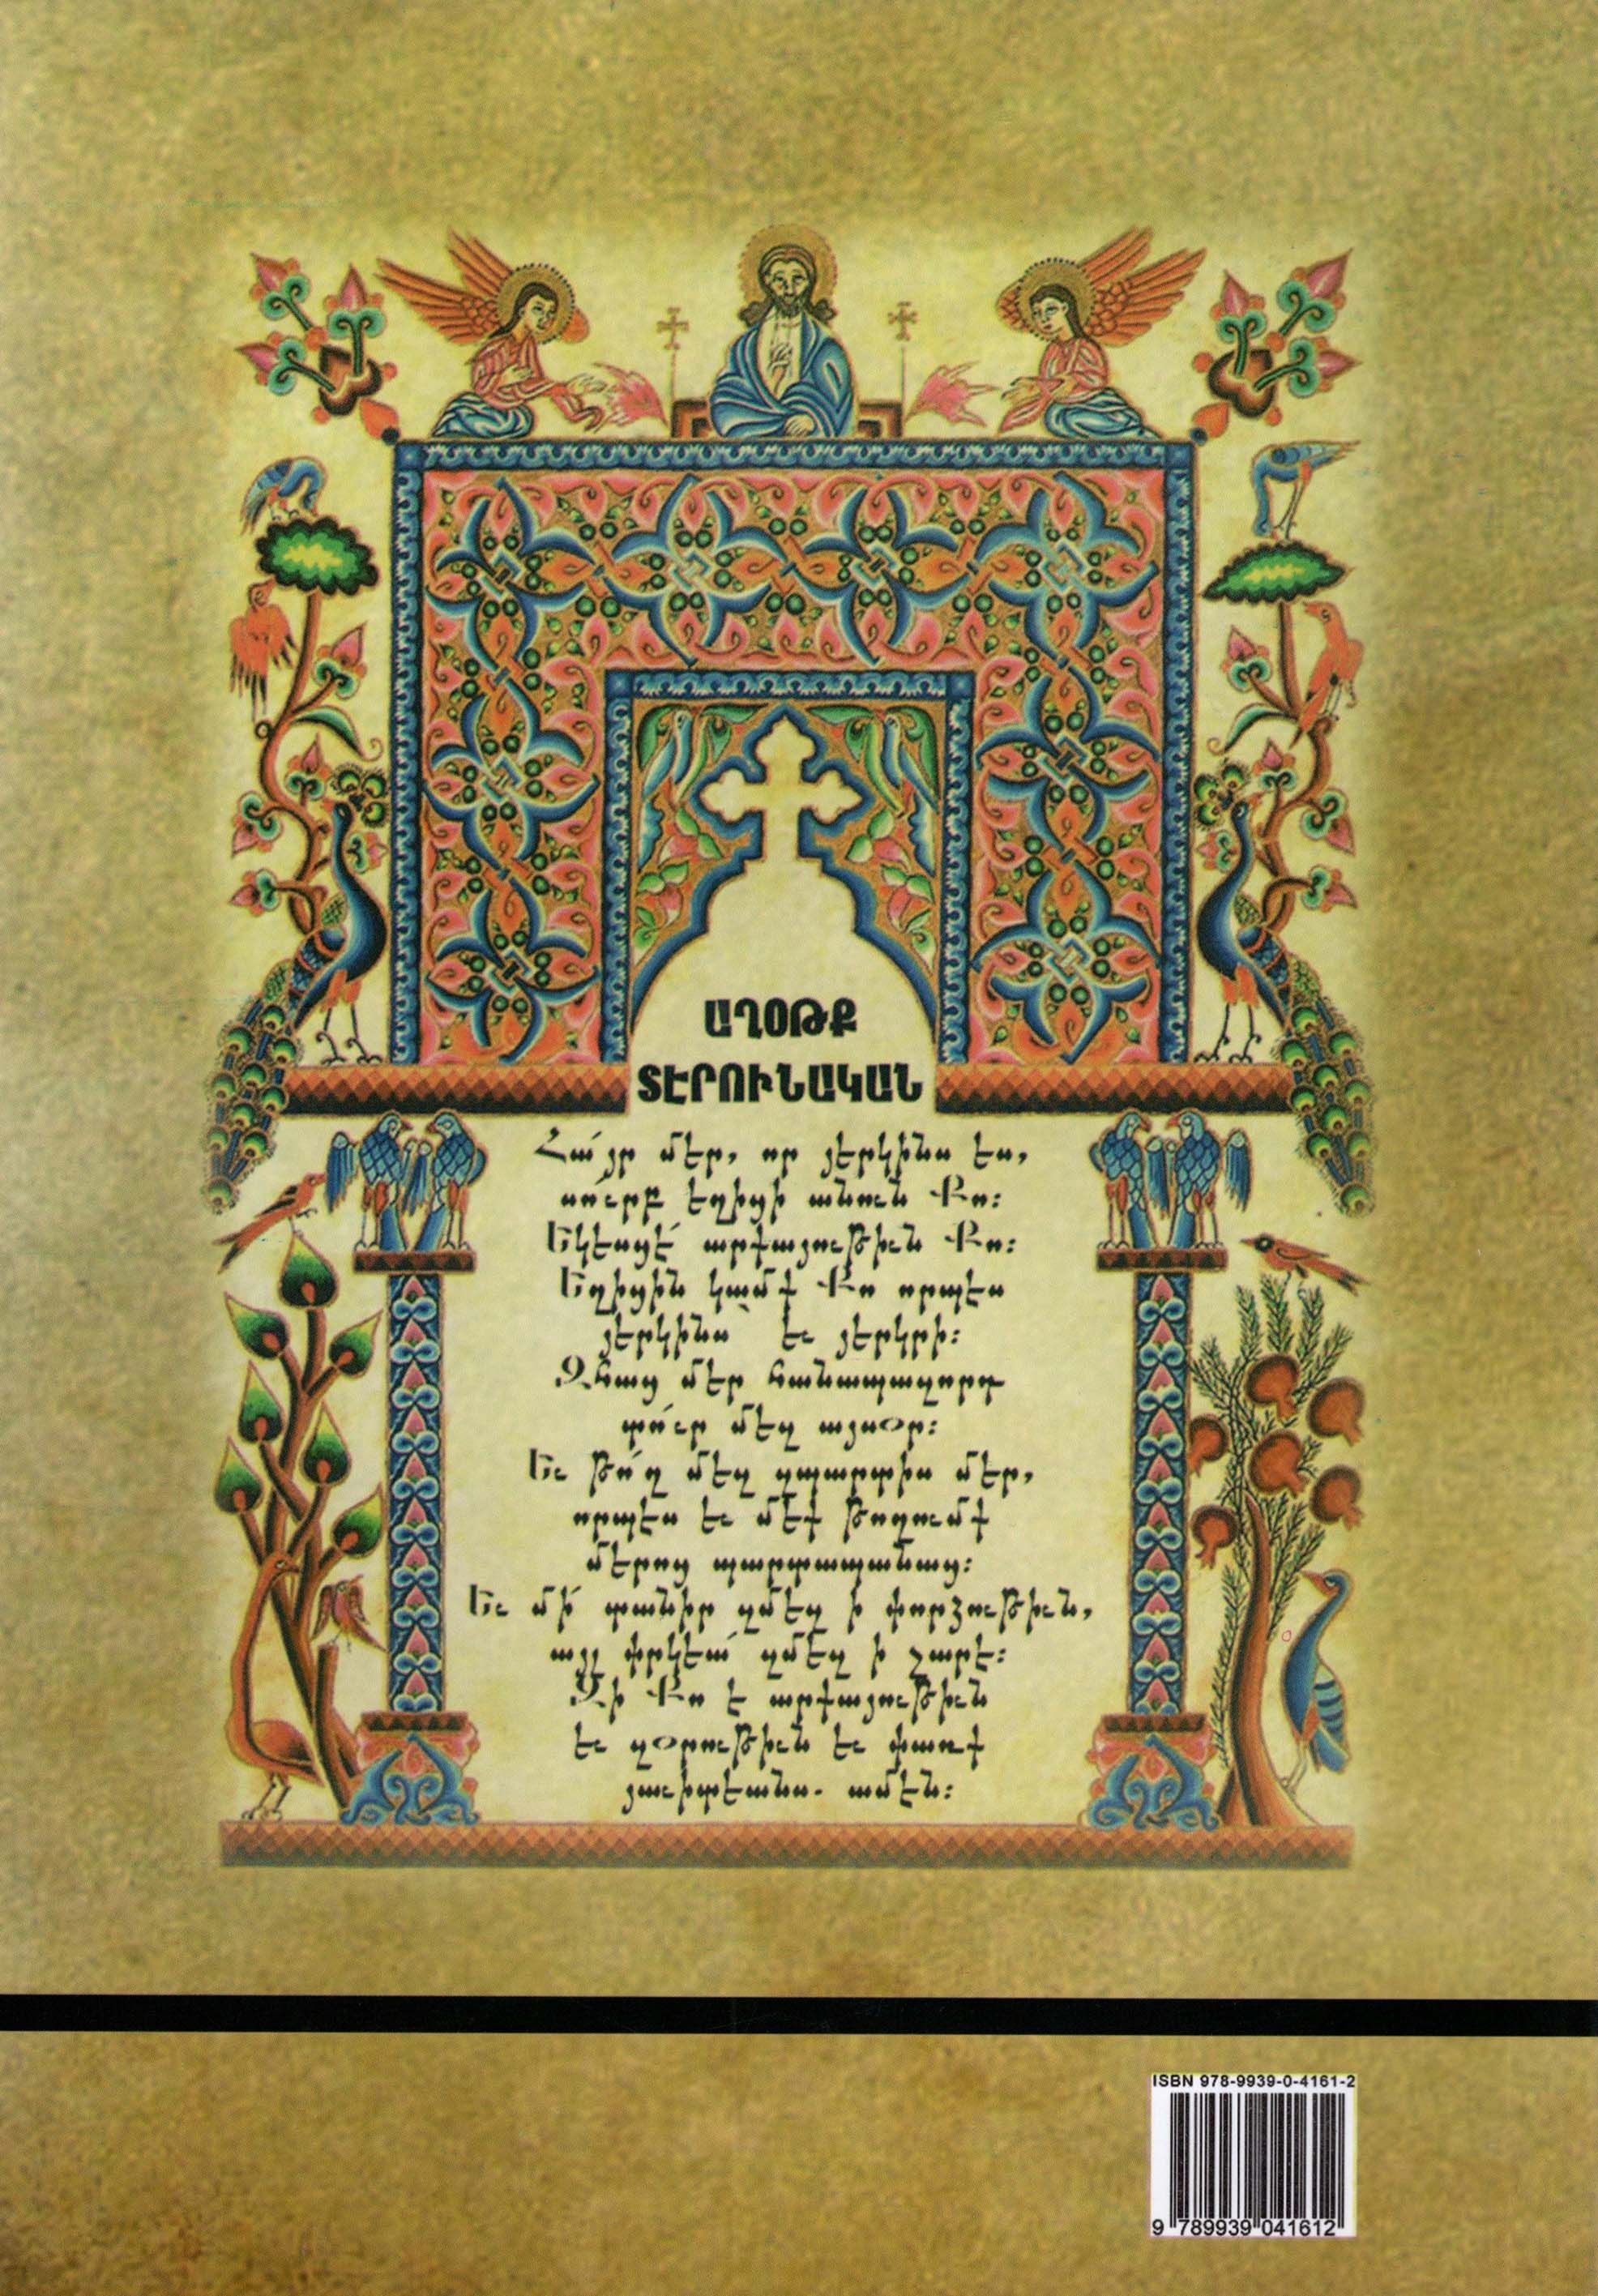 ԱՂՕԹՔ
ՏԷՐՈՒՆԱԿԱՆ
Հա՜յր մեր, որ յերկինս ես,
սո՛ւրբ եղիցի անուն Քո:
Եկեսցէ՛ արքայութիւն Քո:
Եղիցին կամք Քո որպէս
յերկինս՝ եւ յերկրի:
Զհաց մեր հանապազորդ
տո՛ւր մեզ այսօր:
Եւ թո՛ղ մեզ զպարտիս մեր,
որպէս եւ մեք թողումք
մերոց պարտապանաց:
Եւ մի՛ տանիր զմեզ ի փորձութիւն,
այլ փրկեա՛ զմեզ ի չարէ:
Զի Քո է արքայութիւն
եւ զօրութիւն եւ փառք
յաւիտեանս. ամէն:
ISBN 978-9939-0-4161-2
9 789939 041612